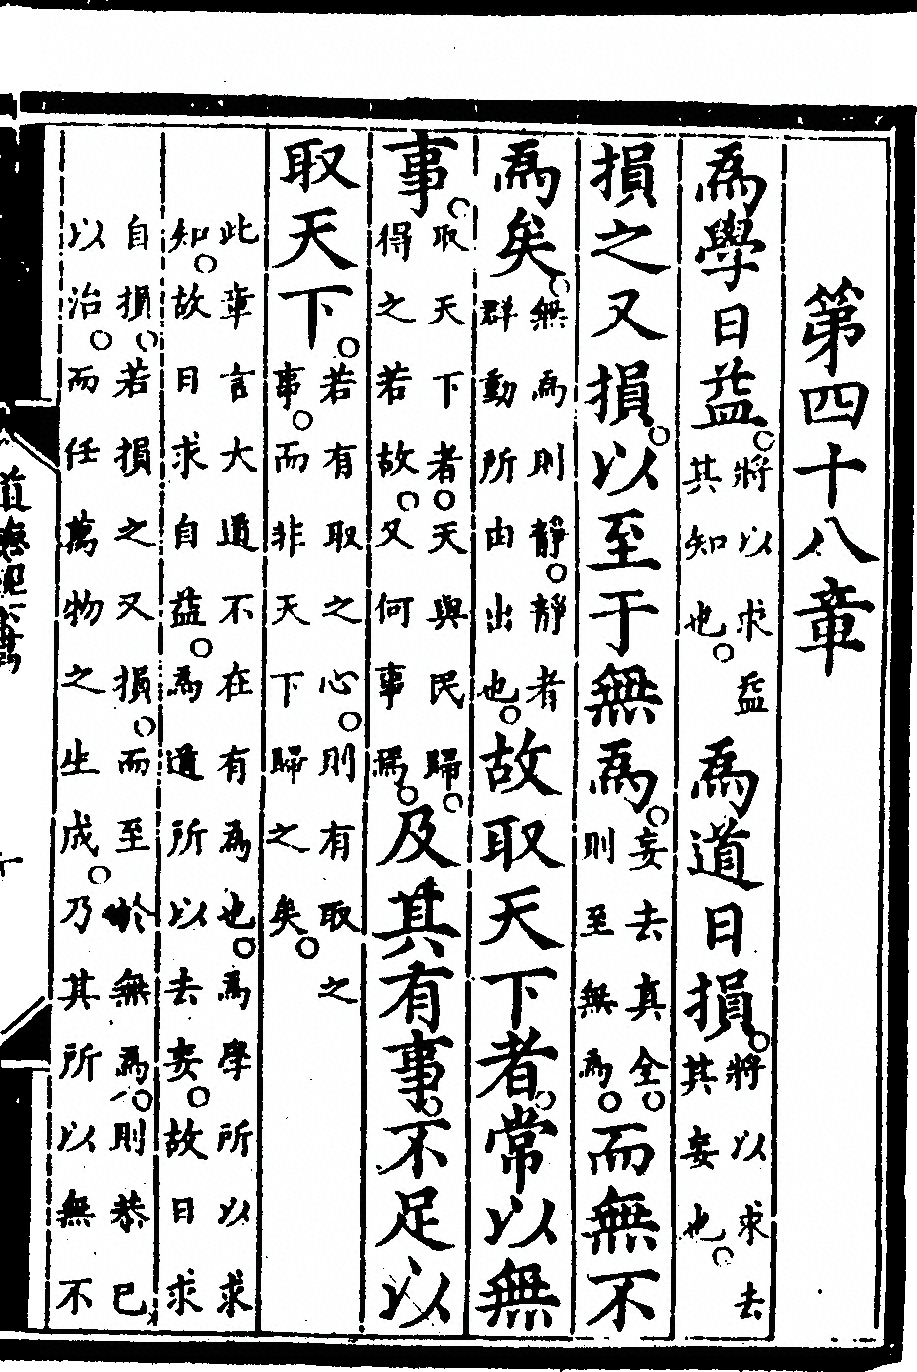 第四十八章
爲學日益。將以求益其知也。爲道日損。將以求去其妄也。
損之又損。以至于無爲。妄去真全。則至無爲。而無不
爲矣。無爲則靜。靜者群動所由出也。故取天下者。常以無
事。取天下者。天與民歸。得之若故。又何事爲。及其有事。不足以
取天下。若有取之心。則有取之事。而非天下歸之矣。
此章言大道不在有爲也。爲學所以求
知。故日求自益。爲道所以去妄。故日求
自損。若損之又損。而至於無爲。則恭已
以治。而任萬物之生成。乃其所以無不